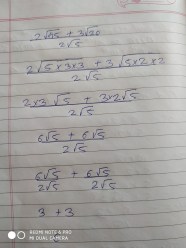 2√45 + 3√20
2√5
2√5×3×3 + 3√5×2×2
2√5
2×3√5 + 3×2√5
2√5
6√5 + 6√5
2√5
6√5 + 6√5
2√5 2√5
3 + 3
REDMI NOTE 6 PRO
MI DUAL CAMERA